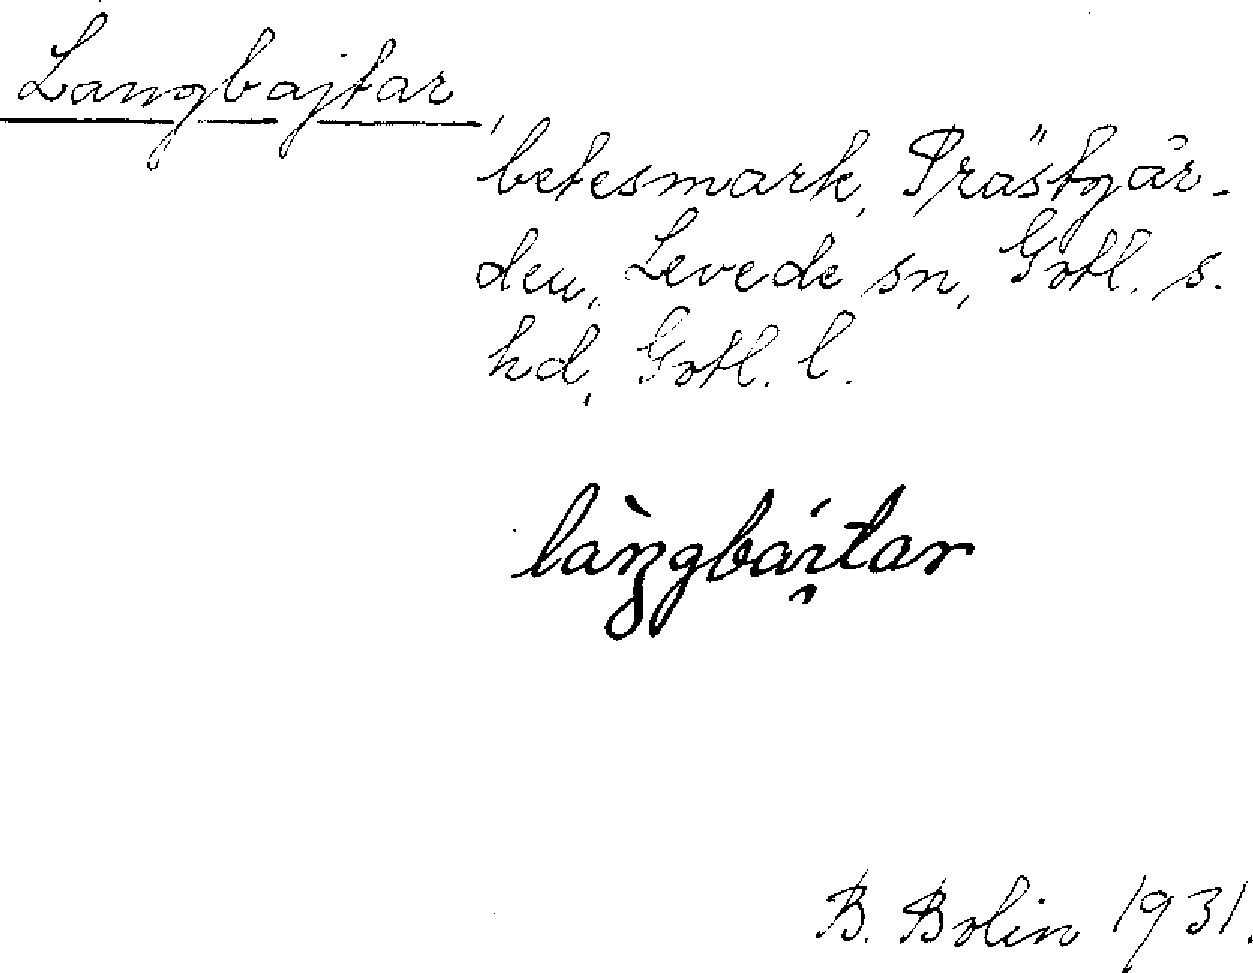 Langbajtar,
betesmark, Prästgår-
den, Levede sn, Gotl. s.
hd, Gotl. l.
làŋgbái̯tar
B. Bolin 1931.